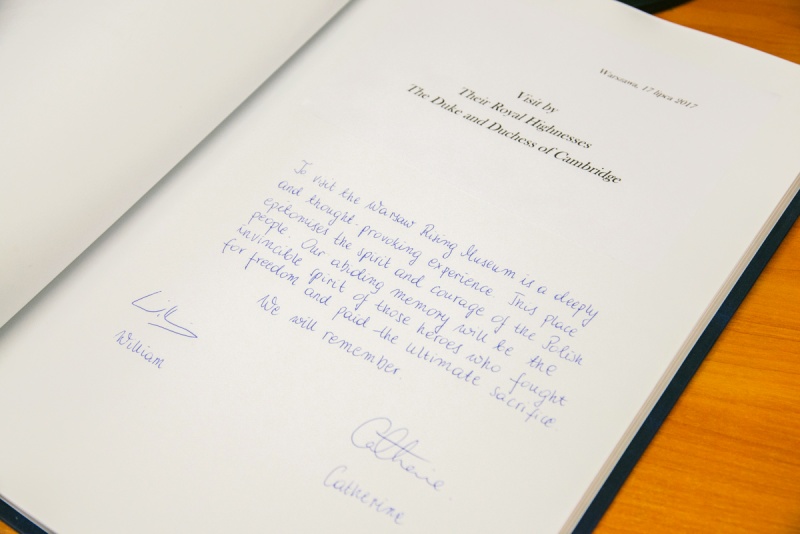 Warszawa, 17 lipca 2017
Visit by
Their Royal Highnesses
The Duke and Duchess of Cambridge
To visit the Warsaw Rising Museum is a deeply
and thought provoking experience. This place
epitomises the spirit and courage of the Polish
people. Our abiding memory will be the
invincible spirit of those heroes who fought
for freedom and paid the ultimate sacrifice.
We will remember.
William
Catherine
Catherine